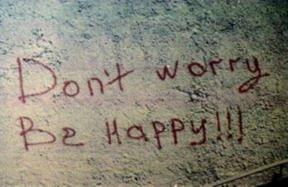 Don't worry
Be Happy!!!